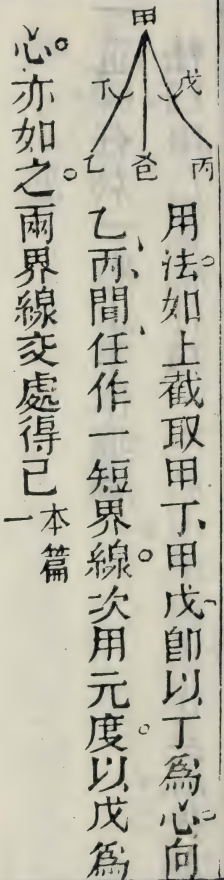 甲
丁 戊
乙 己 丙
用法。如上截取甲丁、甲戊、卽以丁爲心。向
乙丙、間任作一短界線。次用元度。以戊爲
心。亦如之。兩界線交處得己
本篇
一